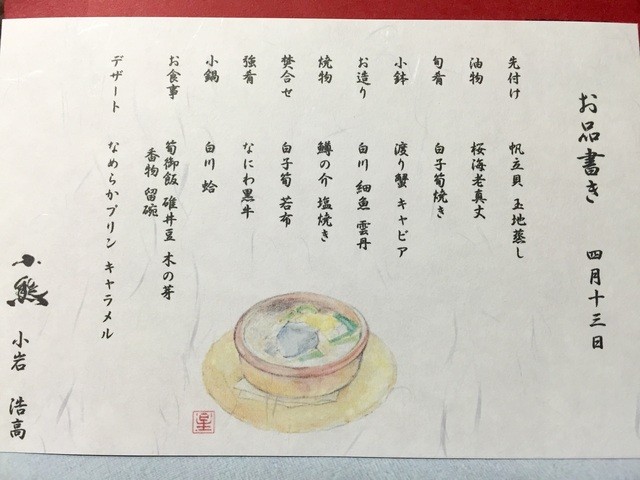 お品書き 四月十三日
先付け 帆立貝 玉地蒸し
油物 桜海老真丈
旬肴 白子筍焼き
小鉢 渡り蟹 キャビア
お造り 白川 細魚 雲丹
焼物 鱒の介 塩焼き
焚合せ 白子筍 若布
強肴 なにわ黒牛
小鍋 白川 蛤
お食事 筍御飯 碓井豆 木の芽
香物 留碗
デザート なめらかプリン キャラメル
小熊 小岩 浩高